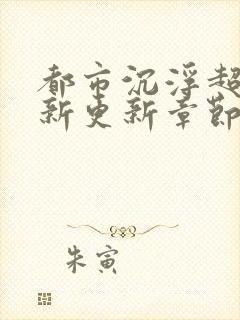 都市沉浮超
新更新章節
朱寅